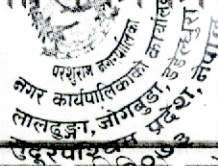 परशुराम नगरपालिका
नगर कार्यपालिकाको कार्यालय
लालढुङ्गा, जोगबुडा, डडेल्धुरा
सुदूरपश्चिम प्रदेश, नेपाल